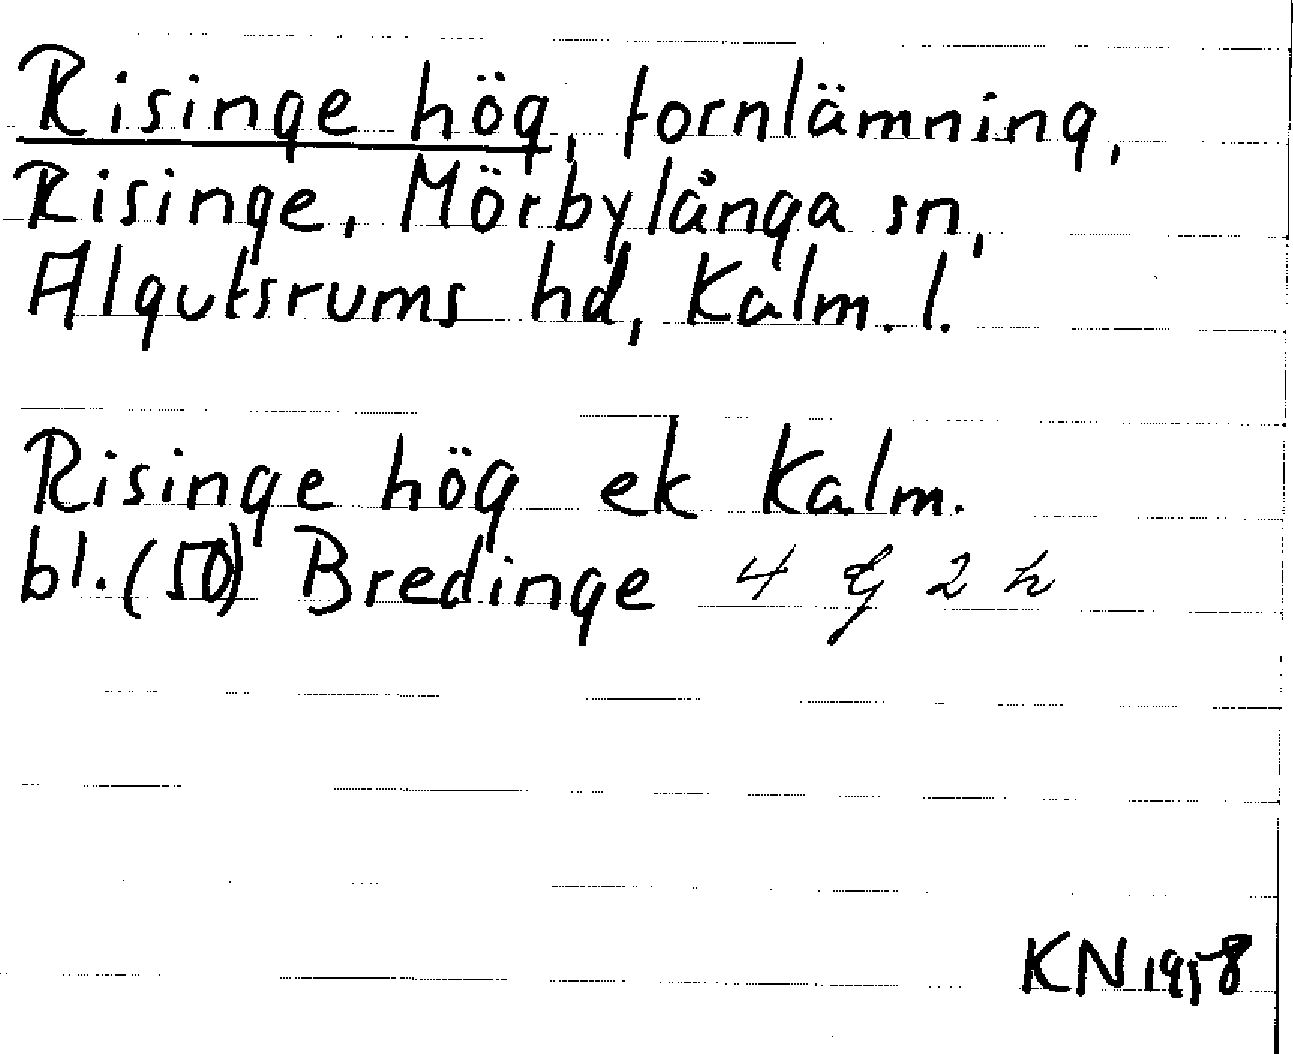 Risinge hög, fornlämning,
Risinge, Mörbylånga sn,
Algutsrums hd, Kalm. l.
Risinge hög ek Kalm.
bl. (50) Bredinge 4 G 2 h
KN 1958